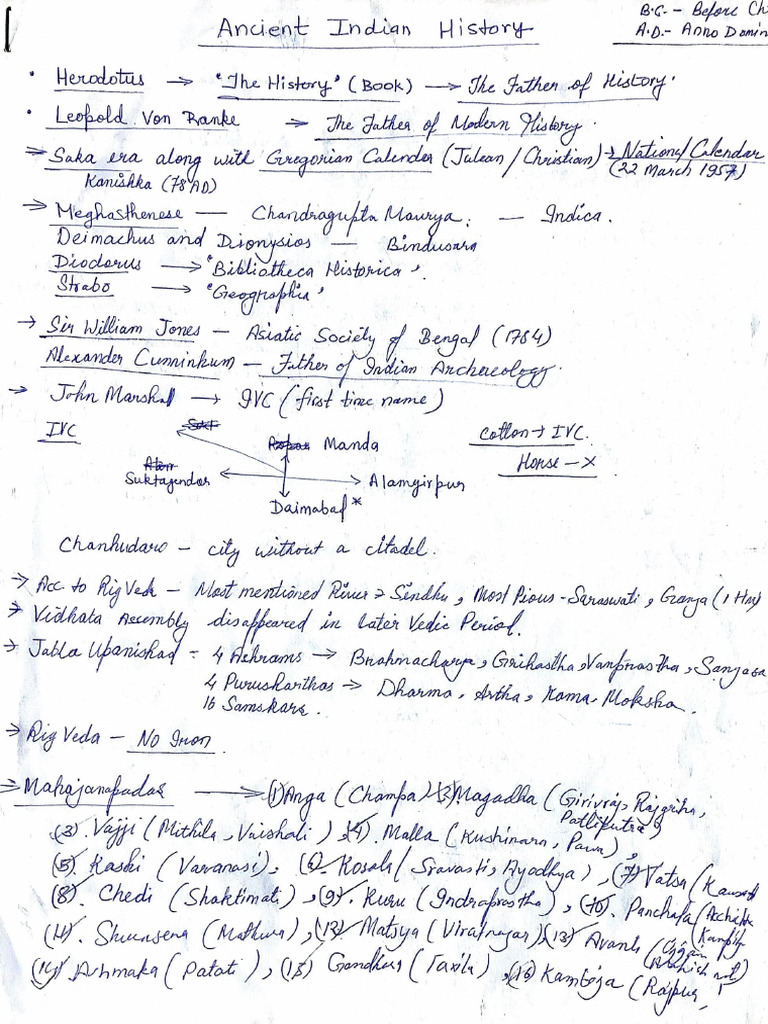 Ancient Indian History
B.C. - Before Ch
A.D. - Anno Domin
• Herodotus → "The History" (Book) → The Father of History.
• Leopold Von Ranke → The Father of Modern History.
⇒ Saka era along with Gregorian Calender (Julean / Christian) → National Calendar
Kanishka (78 AD) (22 March 1957)
→ Meghasthenese — Chandragupta Maurya. — Indica.
Deimachus and Dionysios — Bindusara
Diodorus → 'Bibliotheca Historica'.
Strabo → 'Geographia'
→ Sir William Jones - Asiatic Society of Bengal (1784)
Alexander Cunninkum - Father of Indian Archereology.
→ John Marshal → IVC (first time name)
IVC
Manda
cotton → IVC.
Horse - X
Suktagendor
Alamgirpur
Daimabad *
Chanhudaro - city without a citadel.
→ Acc. to Rig Veda - Most mentioned River → Sindhu, Most Pious - Saraswati, Ganga (1 time)
→ Vidhata Assembly disappeared in later Vedic Period.
→ Jabla Upanishad - 4 Ashrams → Brahmacharya, Grihastha, Vanprastha, Sanyasa
4 Purusharthas → Dharma, Artha, Kama, Moksha.
16 Samskara.
→ Rig Veda - No Iron.
⇒ Mahajanapadas → (1) Anga (Champa) (2) Magadha (Girivraj, Rajgriha,
Patliputra)
(3) Vajji (Mithila, Vaishali), (4) Malla (Kushinara, Pawa),
(5) Kashi (Varanasi), (6) Kosala (Sravasti, Ayodhya), (7) Vatsa (
(8) Chedi (Shaktimati), (9) Kuru (Indraprastha), (10) Panchala (
(11) Shursena (Mathura), (12) Matsya (Viratnagar), (13) Avanti (
(14) Ashmaka (Patati), (15) Gandhar (Taxila), (16) Kamboja (Rajpur,